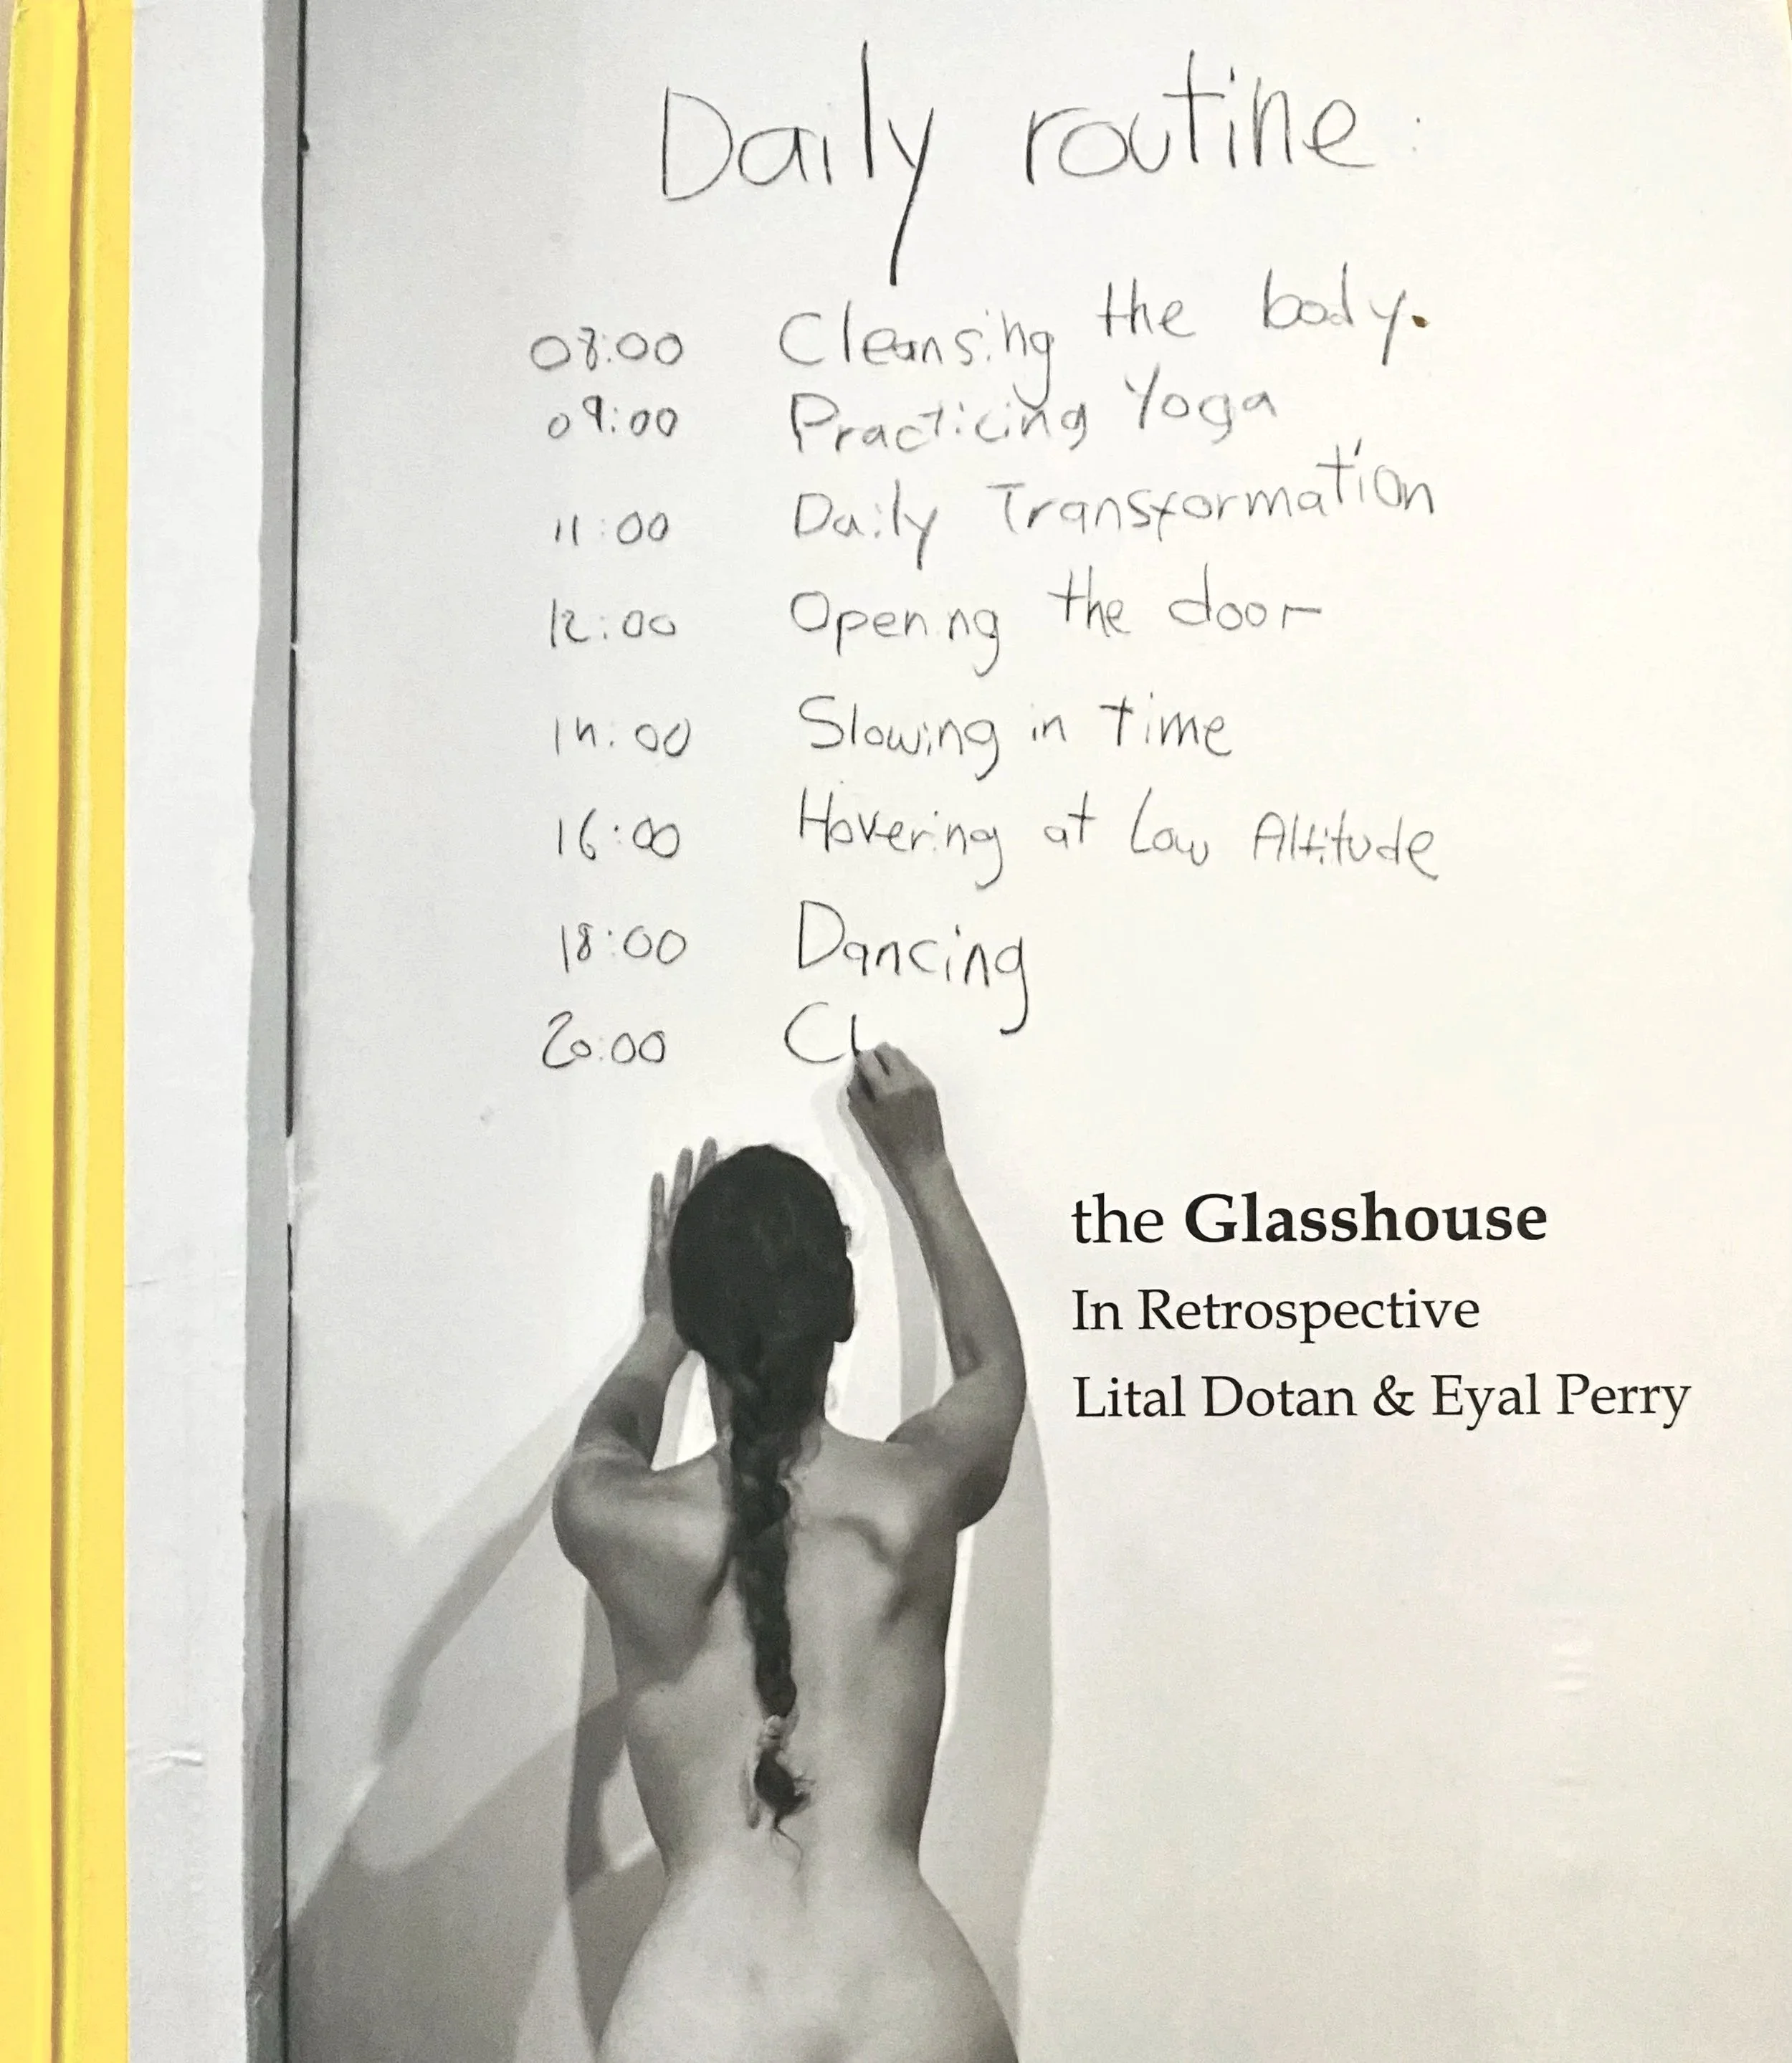 Daily routine:
08:00 Cleansing the body.
09:00 Practicing Yoga
11:00 Daily Transformation
12:00 Opening the door
14:00 Slowing in time
16:00 Hovering at Low Altitude
18:00 Dancing
20:00 Cl
the Glasshouse
In Retrospective
Lital Dotan & Eyal Perry